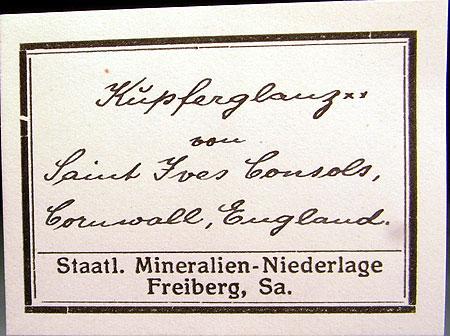 Kupferglanz xx
von
Saint Ives Consols,
Cornwall, England.
Staatl. Mineralien-Niederlage
Freiberg, Sa.